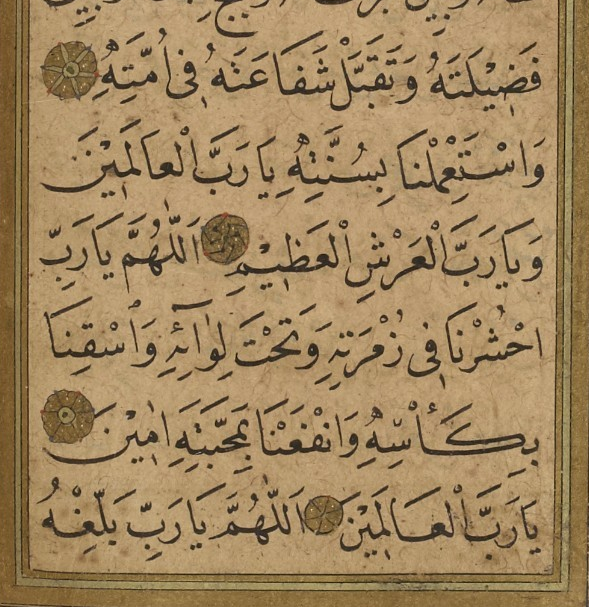 فَضِيْلَتَهُ وَتَقَبَّلْ شَفَاعَتَهُ فِى اُمَّتِهِ
وَاسْتَعْمِلْنَا بِسُنَّتِهِ يَا رَبَّ الْعَالَمِيْنَ
وَيَا رَبَّ الْعَرْشِ الْعَظِيْمِ اَللّٰهُمَّ يَا رَبِّ
احْشُرْنَا فِى زُمْرَتِهِ وَتَحْتَ لِوَآئِهِ وَاسْقِنَا
بِكَأْسِهِ وَانْفَعْنَا بِمَحَبَّتِهِ اٰمِيْنَ
يَا رَبَّ الْعَالَمِيْنَ اَللّٰهُمَّ يَا رَبِّ بَلِّغْهُ